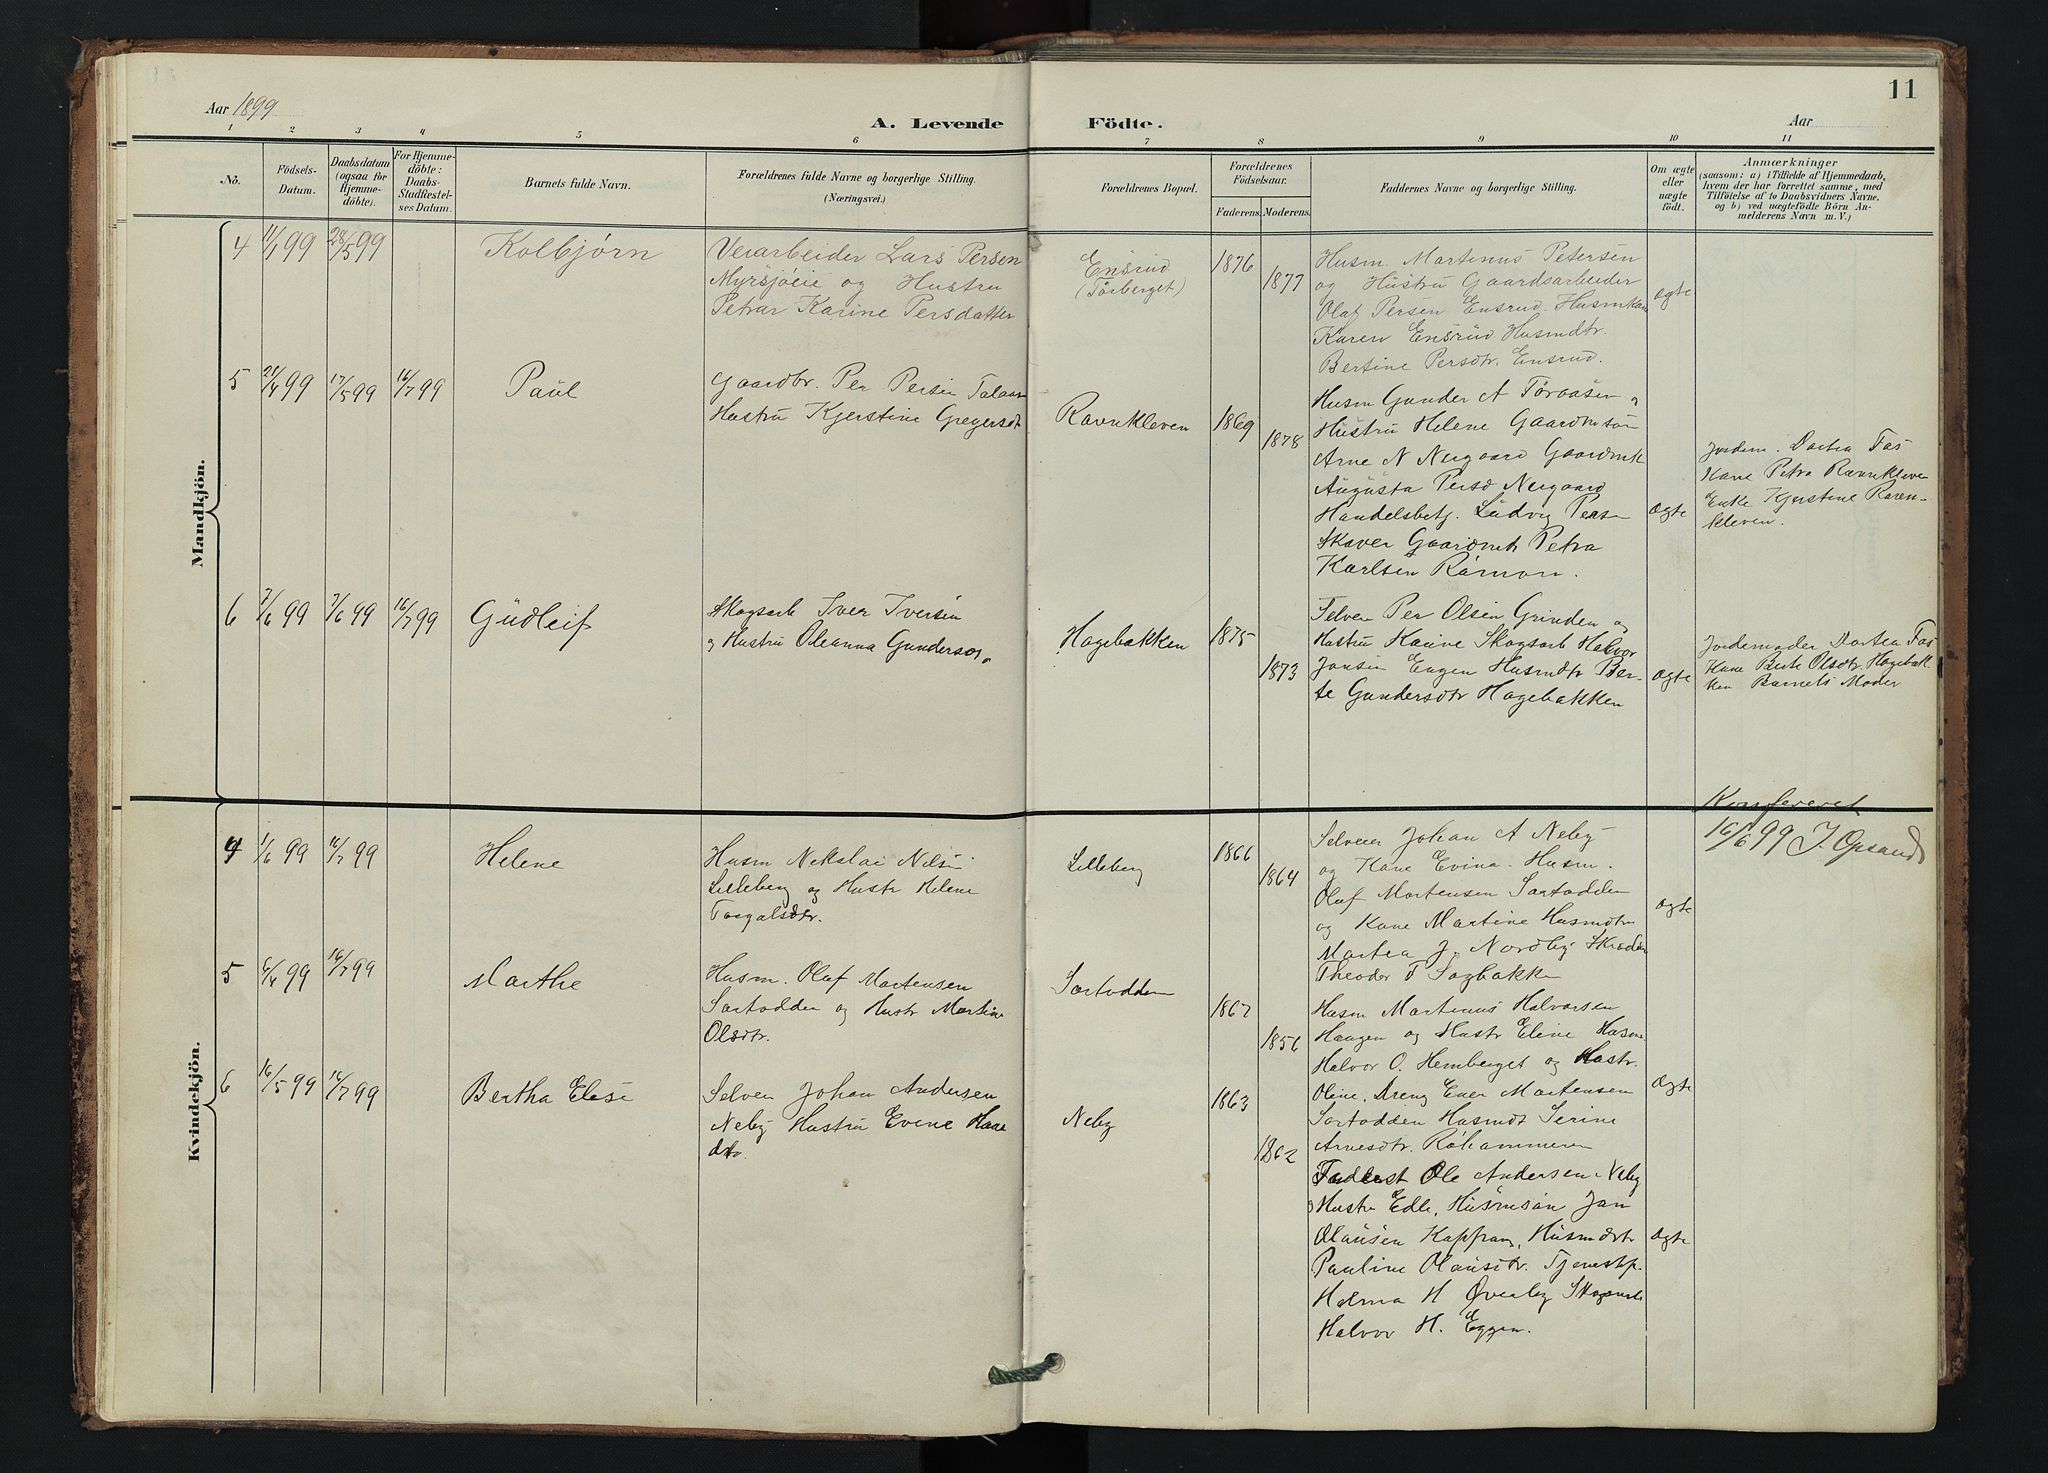 11
Aar 1899
A. Levende Födte.
Aar
1 2 3 4 5 6 7 8 9 10 11
No.
Födsels-
Datum.
Daabsdatum
(ogsaa for
Hjemme-
döbte).
For Hjemme-
döbte:
Daabs-
Stadfæstel-
ses Datum.
Barnets fulde Navn.
Forældrenes fulde Navne og borgerlige Stilling.
(Næringsvei.)
Forældrenes Bopæl.
Forældrenes
Födselsaar.
Faderens. Moderens.
Faddernes Navne og borgerlige Stilling.
Om ægte
eller
uægte
födt.
Anmærkninger
(saasom: a) i Tilfælde af Hjemmedaab,
hvem der har forrettet samme, med
Tilföielse af to Daabsvidners Navne,
og b) ved uægtefödte Börn An-
melderens Navn m. V.)
Mandkjön.
4 11/1 99 28/5 99 Kolbjørn
Verarbeider Lars Persen
Myrsjøeie og Hustru
Petra Karine Persdatter
Ensrud
(Törberget)
1876
1877
Husm. Martinus Petersen
og Hustru Gaardsarbeider
Olaf Persen Ensrud. Husmkone
Karen Ensrud Husmdtr.
Bertine Persdtr. Ensrud.
ægte
5 21/4 99 17/5 99 16/7 99 Paul
Gaardbr. Per Persen
Hustru Kjerstine Gregersdt
Ravnkleven
1869
1878
Husm Gunder A Töraasen og
Hustru Helene
Arne N Nergaard
Augusta Persd Nergaard
Handelsbetj. Ludvig Pers
Petra
Karlsen
ægte
Jordem. Dortea Fas
Kone Petra Ravnkleven
Enke Kjerstine Raven-
kleven.
6 7/6 99 7/6 99 16/7 99 Gudleif
Skogsarb Iver Iversen
og Hustru Oleanna Gunders
Hagebakken
1875
1873
Selveier Per Olsen Grinden og
Hustru Karine Skogsarb Halvor
Jonsen Engen Husmdtr Ber-
te Gundersdtr Hagebakken
ægte
Jordemoder Dortea Fas
Kone Berte Olsdtr. Hagebak-
ken Barnets Moder
Konfereret
16/6 99 J. Opsand
Kvindekjön.
4 1/6 99 16/7 99 Helene
Husm Nikolai Nils
Lilleberg og Hustr Helene
Lilleberg
1866
1864
Selveier Johan A Neby
og Kone Evina. Husm.
Olaf Mortensen Sortodden
og Kone Martine Husmdtr
Martea J. Nordby
Theodor T Sagbakken
ægte
5 6/4 99 16/7 99 Marthe
Husm. Olaf Mortensen
Sortodden og Hustr Martine
Olsdtr.
Sortodden
1867
1856
Husm Martinus Halvorsen
Haugen og Hustr Eline Husm
Halvor O. Hemberget og Hustr.
Oline, Dreng Mortensen
Sortodden Husmdt Serine
Arnesdtr.
ægte
6 16/5 99 16/7 99 Bertha Elise
Selveier Johan Andersen
Neby Hustru Evene
Neby
1863
1862
Ole Andersen Neby
og Hustr Edle, Husmsøn Jon
Olausen Kappfang, Husmdtr
Pauline Tjenestp.
Halma H Øverby
Halvor H. Eggen.
ægte